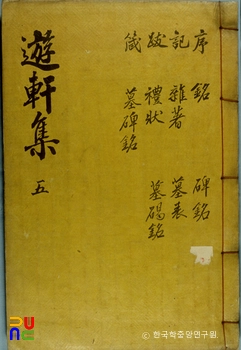 序 銘 碑銘
記 雜著 墓表
跋 禮狀 墓碣銘
箴 墓碑銘
遊軒集 五
© 한국학중앙연구원